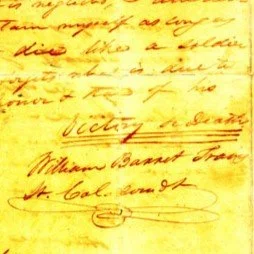 is neglected, I am deter
tain myself as long as
die like a soldier
forgets what is due to
onor & that of his
Victory or Death
William Barret Travis
Lt. Col. comdt